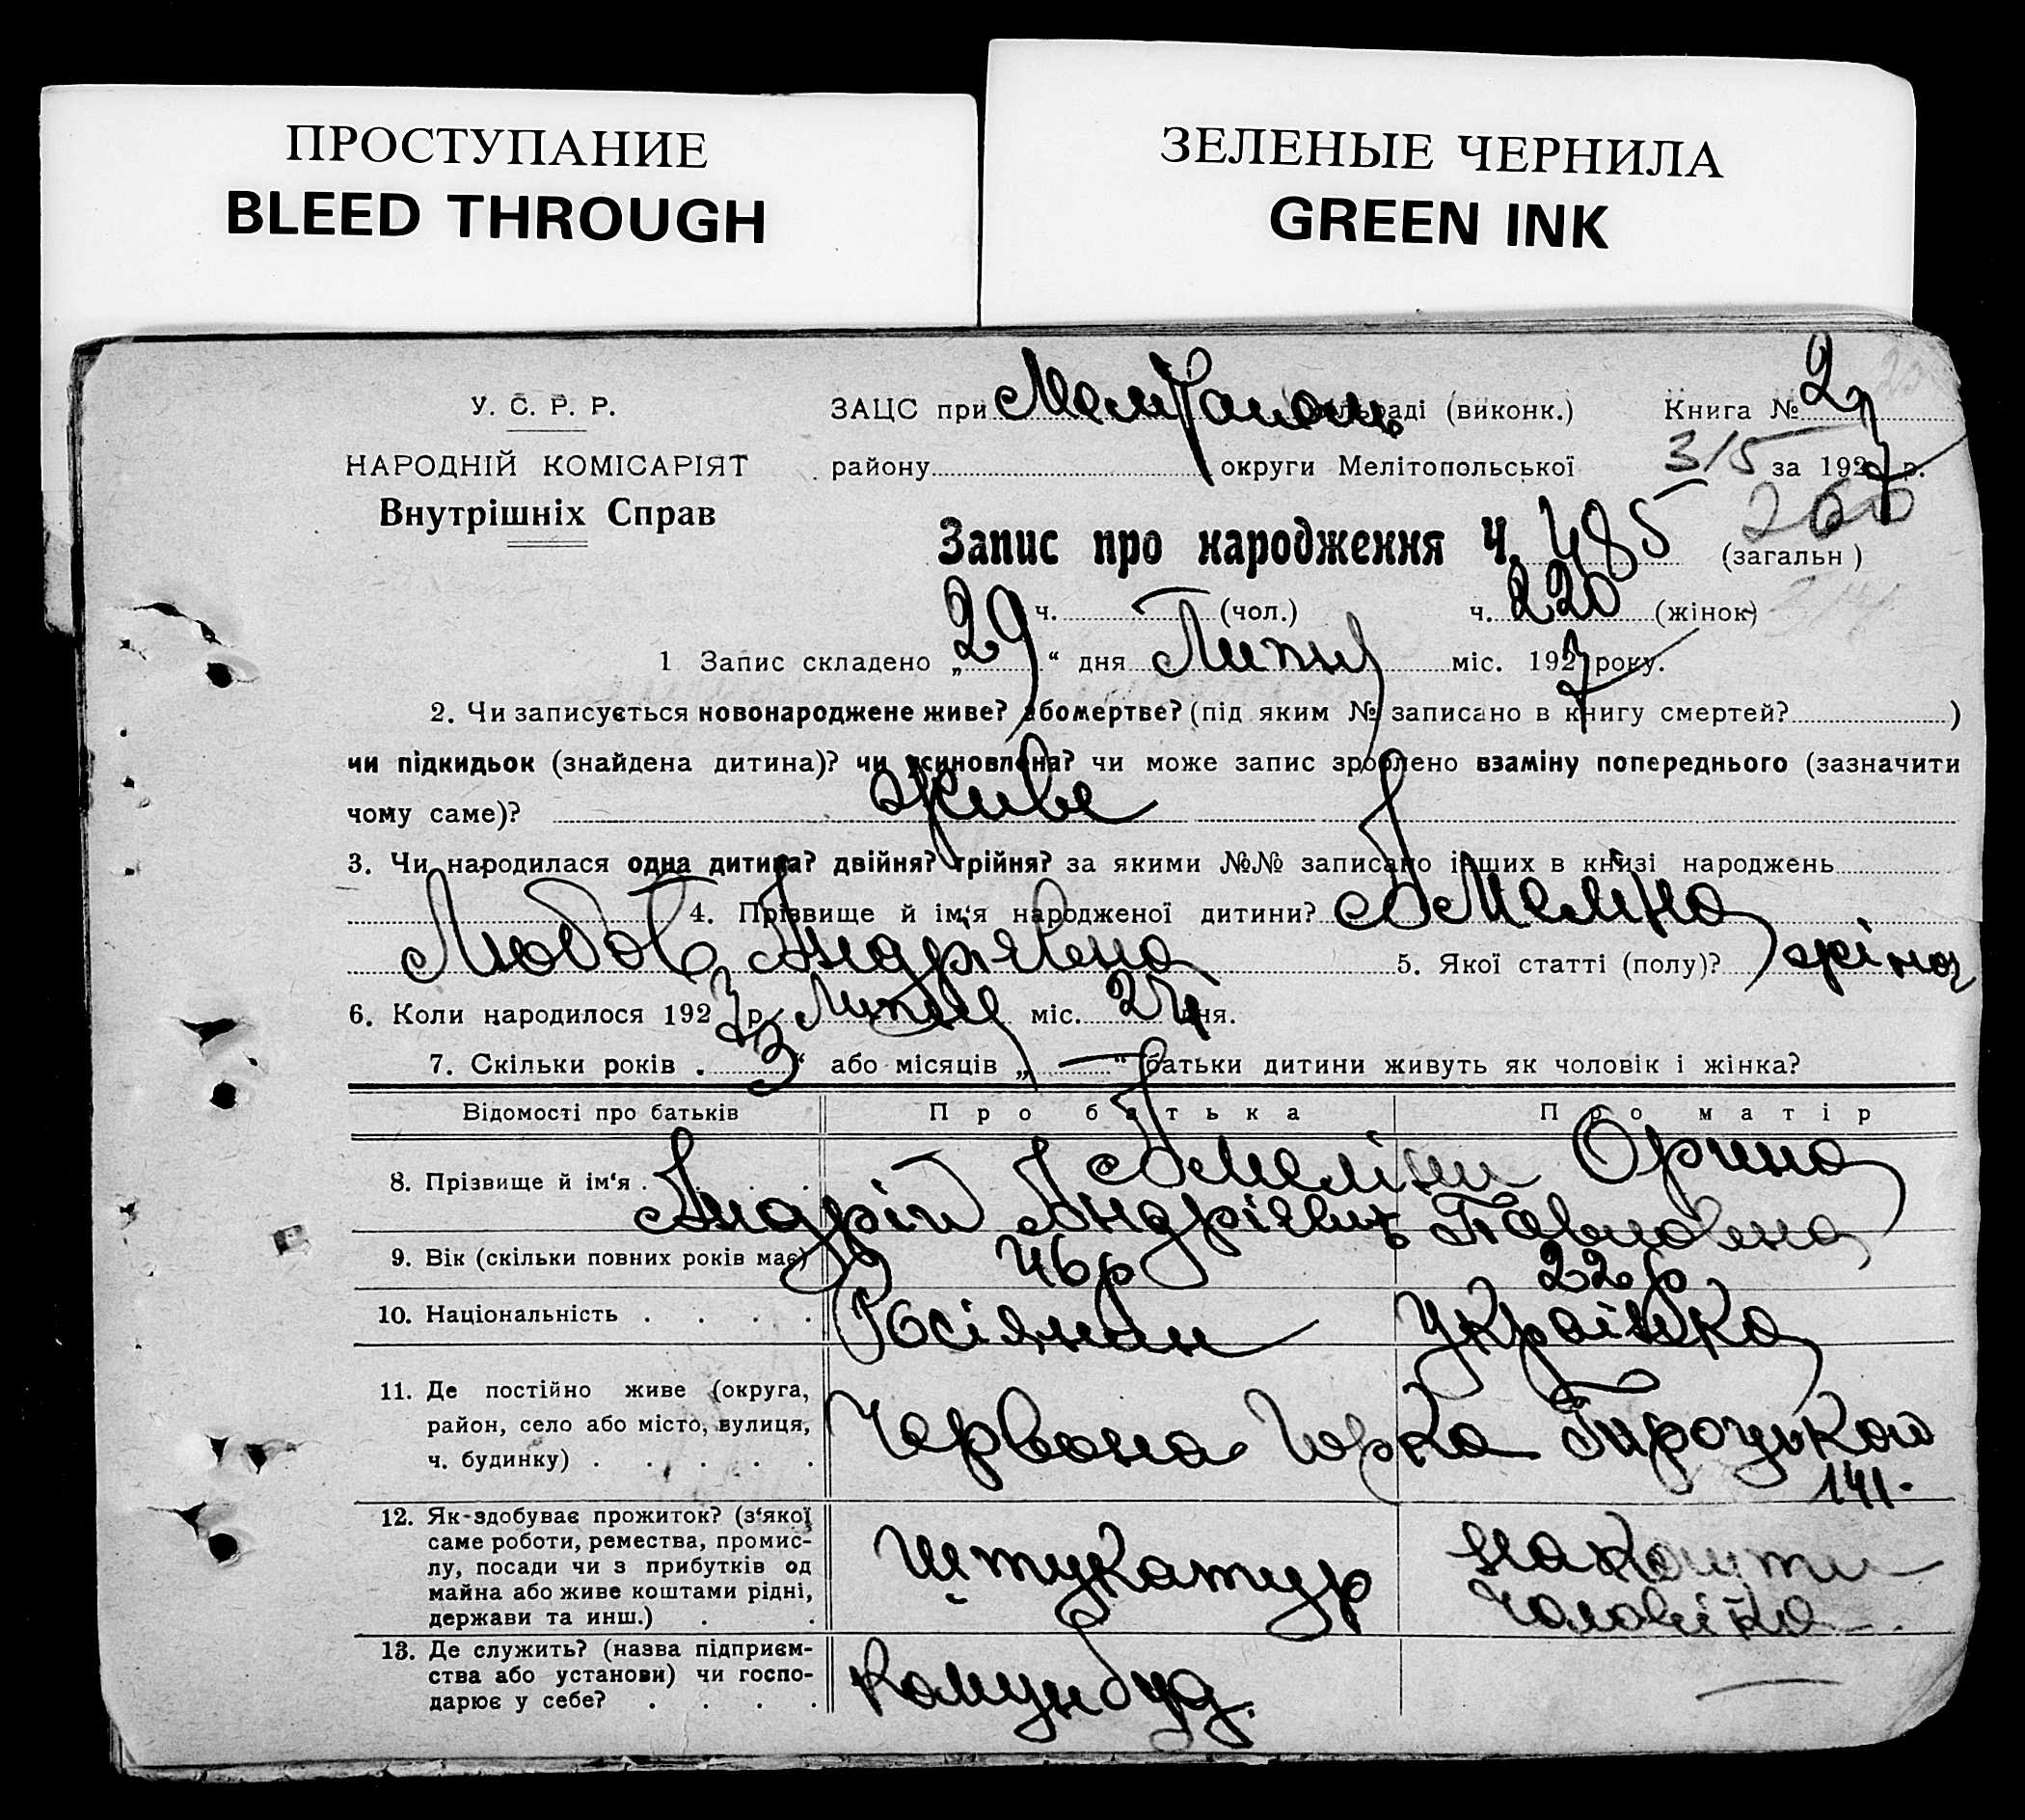 ПРОСТУПАНИЕ
BLEED THROUGH
ЗЕЛЕНЫЕ ЧЕРНИЛА
GREEN INK
У. С. Р. Р.
НАРОДНІЙ КОМІСАРІЯТ
Внутрішніх Справ
ЗАЦС при раді (виконк.) Книга № 2
району округи Мелітопольської 315 за 1927 р.
260
Запис про народження Ч. 485 (загальн )
ч. — (чол.) ч. 220 (жінок) 314
1 Запис складено „29“ дня Липня міс. 1927 року.
2. Чи записується новонароджене живе? або мертве? (під яким № записано в книгу смертей? )
чи підкидьок (знайдена дитина)? чи усиновлена? чи може запис зроблено взаміну попереднього (зазначити
чому саме)? живе
3. Чи народилася одна дитина? двійня? трійня? за якими №№ записано інших в книзі народжень
4. Прізвище й ім‘я народженої дитини? Амеліна
Любов Андріївна 5. Якої статті (полу)? жіноч
6. Коли народилося 1927 р. Липня міс. 24 дня.
7. Скільки років „3“ або місяців „—“ батьки дитини живуть як чоловік і жінка?
Відомості про батьків Про батька Про матір
8. Прізвище й ім‘я . . . . Амеліни Орина
Андрій Андрієвич Павловна
9. Вік (скільки повних років має) 46 р 22 р
10. Національність . . . . Росіянин Українка
11. Де постійно живе (округа,
район, село або місто, вулиця,
ч. будинку) . . . . . Червона Гірка Троцького
141.
12. Як-здобуває прожиток? (з‘якої
саме роботи, ремества, промис-
лу, посади чи з прибутків од
майна або живе коштами рідні,
держави та инш.) . . Штукатур на кошти
чоловіка
13. Де служить? (назва підприєм-
ства або установи) чи госпо-
дарює у себе? . . . . Комунбуд. —